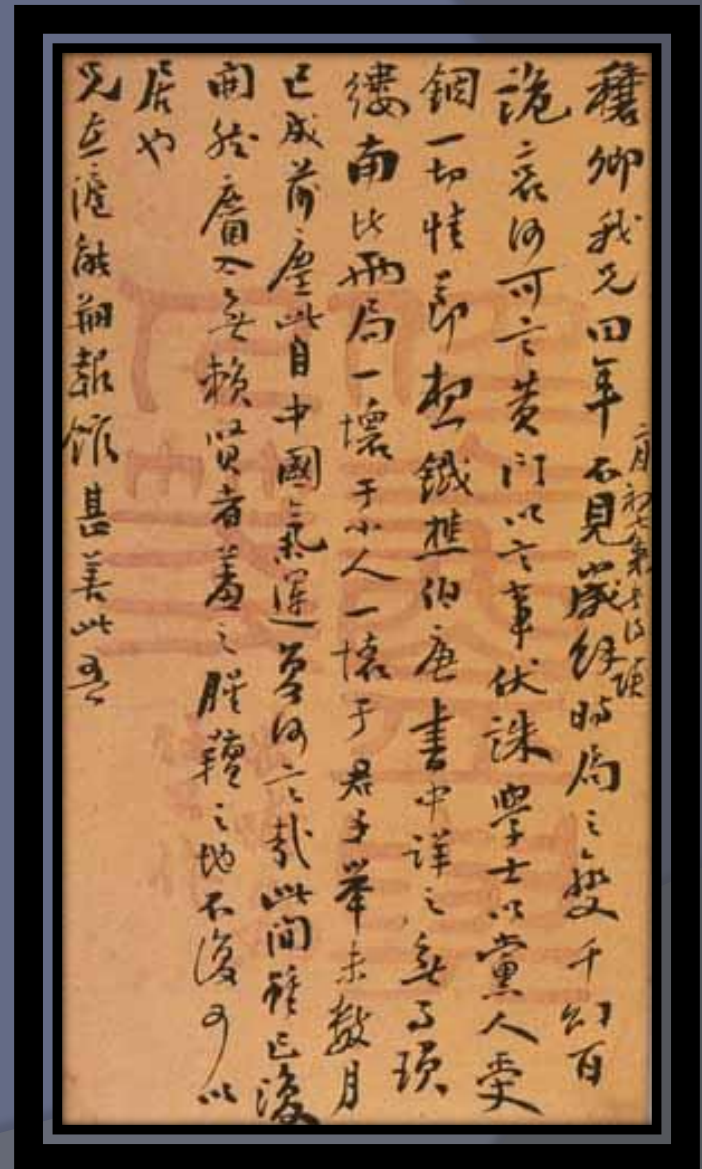 穰卿我兄四年不見歲經時局之變千幻百
二月初七
詭哀何可言黃門以言事伏誅學士以黨人受
錮一切情節想鐵樵伯唐書中詳之無事瑣
縷南北兩局一壞于小人一壞于君子舉未數月
已成前塵此自中國氣運何言哉此間雖已復
開然麕入無賴賢者羞之腥羶之地不復可以
居也
兄在滬能創報館甚善此吾